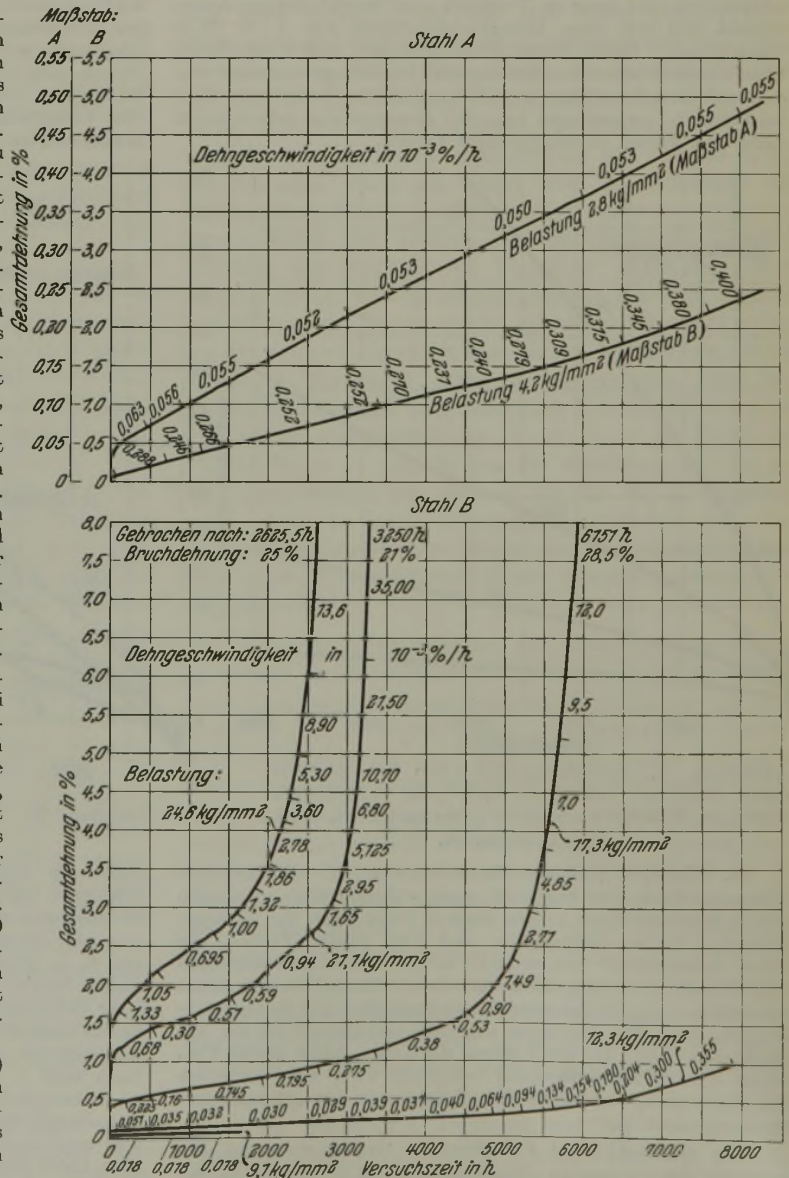 Maßstab:
A B
Stahl A
0,55 5,5
0,50 5,0
0,45 4,5
0,40 4,0
0,35 3,5
0,30 3,0
0,25 2,5
0,20 2,0
0,15 1,5
0,10 1,0
0,05 0,5
0 0
Gesamtdehnung in %
Dehngeschwindigkeit in 10⁻³ %/h
0,063 0,056 0,055 0,052 0,053 0,050 0,053 0,055 0,055
Belastung 2,8 kg/mm² (Maßstab A)
0,288 0,246 0,266 0,252 0,252 0,270 0,231 0,240 0,279 0,309 0,315 0,345 0,380 0,400
Belastung 4,2 kg/mm² (Maßstab B)
Stahl B
8,0
7,5
7,0
6,5
6,0
5,5
5,0
4,5
4,0
3,5
3,0
2,5
2,0
1,5
1,0
0,5
0
Gesamtdehnung in %
Gebrochen nach: 2625,5h 3250h 6151h
Bruchdehnung: 25% 21% 28,5%
Dehngeschwindigkeit in 10⁻³ %/h
Belastung:
24,6 kg/mm²
13,6
8,90
5,30
3,60
2,78
1,86
1,32
1,00
0,695
1,05
1,33
35,00
21,50
10,70
6,80
5,125
2,95
1,65
21,1 kg/mm²
0,94
0,59
0,51
0,30
0,68
12,0
9,5
7,0
17,3 kg/mm²
4,85
2,71
1,49
0,90
0,53
0,38
0,275
0,195
0,145
0,16
0,225
12,3 kg/mm²
0,051 0,035 0,032 0,030 0,029 0,039 0,037 0,040 0,064 0,094 0,134 0,154 0,180 0,204 0,300 0,355
0 1000 2000 3000 4000 5000 6000 7000 8000
0,018 0,018 0,018 9,1 kg/mm² Versuchszeit in h